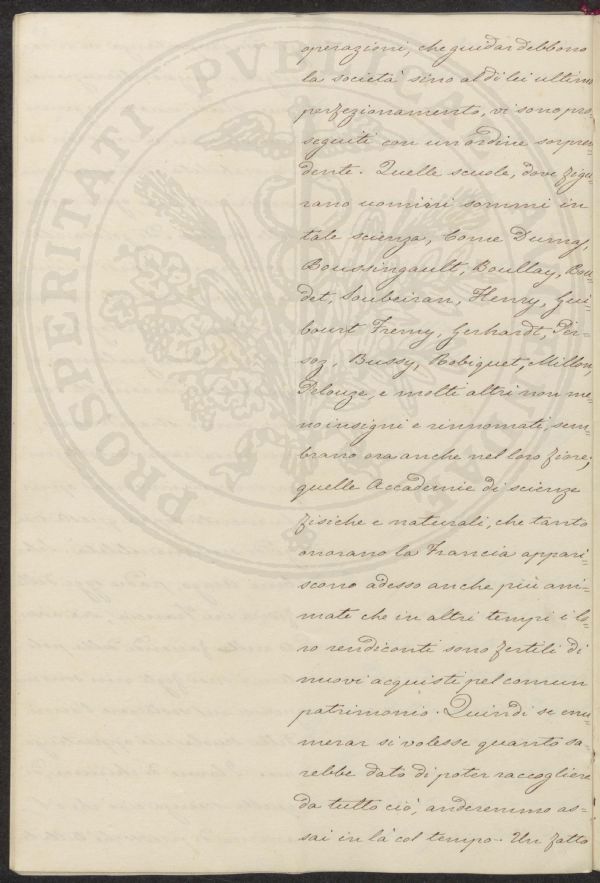 operazioni, che guidar debbono
la società sino al di lei ultimo
perfezionamento, vi sono pro=
seguiti con un ordine sorpren
dente. Quelle scuole, dove figu=
rano uomini sommi in
tale scienza, Come Dumas,
Boussingault, Boullay, Bou=
det, Soubeiran, Henry, Gui=
bourt Fremy, Gerhardt, Per=
soz, Bussy, Robiquet, Millon,
Pelouze, e molti altri non me=
no insigni e rinnomati, sem=
brano ora anche nel loro fiore;
quelle Accademie di scienze
fisiche e naturali, che tanto
onorano la Francia appari=
scono adesso anche più ani=
mate che in altri tempi i lo=
ro rendiconti sono fertili di
nuovi acquisti pel comun
patrimonio. Quindi se enu=
merar si volesse quanto sa=
rebbe dato di poter raccogliere
da tutto ciò, anderemmo as=
sai in là col tempo. Un fatto
PROSPERITATI PVBLICAE